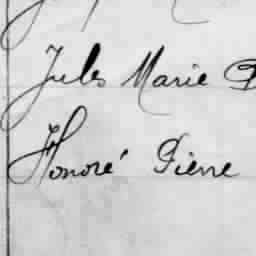 Jules Marie
Honoré Pierre